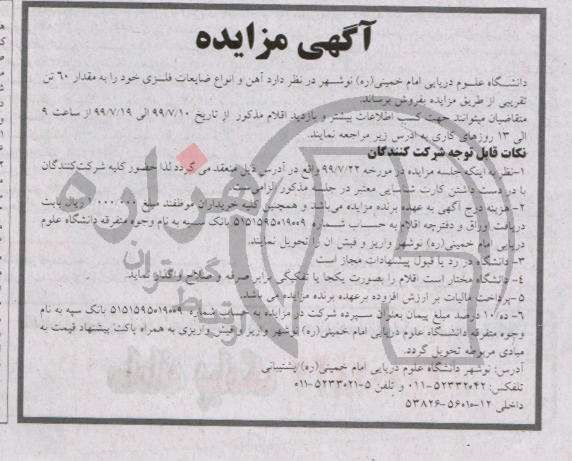 آگهی مزایده
دانشگاه علوم دریایی امام خمینی(ره) نوشهر در نظر دارد آهن و انواع ضایعات فلزی خود را به مقدار ۶۰ تن
تقریبی از طریق مزایده بفروش برساند.
متقاضیان میتوانند جهت کسب اطلاعات بیشتر و بازدید اقلام مذکور از تاریخ ۹۹/۷/۱۰ الی ۹۹/۷/۱۹ از ساعت ۹
الی ۱۳ روزهای کاری به آدرس زیر مراجعه نمایند.
نکات قابل توجه شرکت کنندگان
۱-نظر به اینکه جلسه مزایده در مورخه ۹۹/۷/۲۲ واقع در آدرس ذیل منعقد می گردد لذا حضور کلیه شرکت‌کنندگان
با در دست داشتن کارت شناسایی معتبر در جلسه مذکور الزامی‌ست.
۲-هزینه درج آگهی به عهده برنده مزایده می‌باشد و همچنین کلیه خریداران موظفند مبلغ ۱/۰۰۰/۰۰۰ ریال بابت
دریافت اوراق و دفترچه اقلام به حساب شماره ۵۱۵۱۵۹۵۰۱۹۰۰۹ بانک سپه به نام وجوه متفرقه دانشگاه علوم
دریایی امام خمینی(ره) نوشهر واریز و فیش آن را تحویل نمایند.
۳- دانشگاه در رد یا قبول پیشنهادات مجاز است
۴- دانشگاه مختار است اقلام را بصورت یکجا یا تفکیکی برابر صرفه و صلاح واگذار نماید.
۵-پرداخت مالیات بر ارزش افزوده برعهده برنده مزایده می باشد.
۶- ده/۱۰ درصد مبلغ پیمان بعنوان سپرده شرکت در مزایده به حساب شماره ۵۱۵۱۵۹۵۰۱۹۰۰۹ بانک سپه به نام
وجوه متفرقه دانشگاه علوم دریایی امام خمینی(ره) نوشهر واریز و فیش واریزی به همراه پاکت پیشنهاد قیمت به
مبادی مربوطه تحویل گردد.
آدرس: نوشهر دانشگاه علوم دریایی امام خمینی(ره)/پشتیبانی
تلفکس: ۵۲۳۳۲۰۴۲-۰۱۱ و تلفن ۵-۵۲۳۳۰۲۱-۰۱۱
داخلی ۱۲-۵۶۰۱۰-۵۳۸۲۶
هزاره
گستران
ارتباط